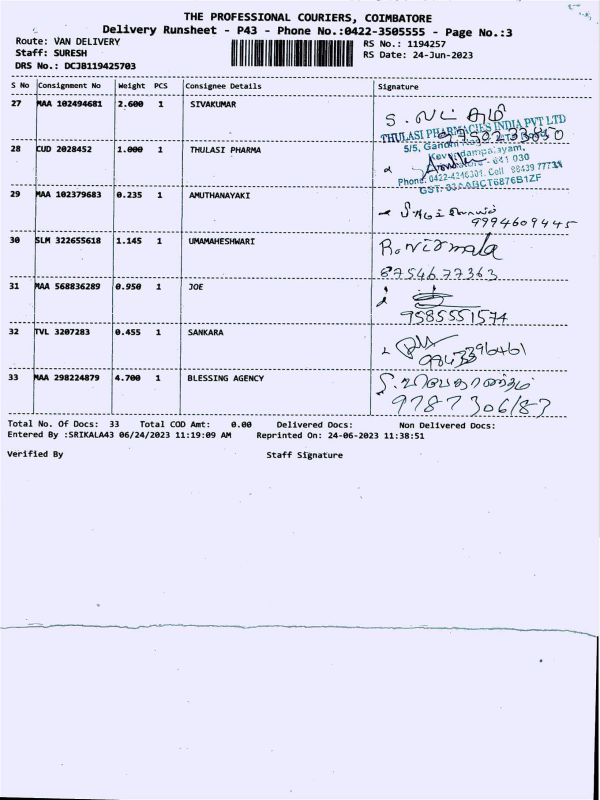 THE PROFESSIONAL COURIERS, COIMBATORE
Delivery Runsheet - P43 - Phone No.:0422-3505555 - Page No.:3
Route: VAN DELIVERY
RS No.: 1194257
Staff: SURESH
RS Date: 24-Jun-2023
DRS No.: DCJB119425703
S No Consignment No Weight PCS Consignee Details Signature
27 MAA 102494681 2.600 1 SIVAKUMAR
THULASI PHARMACIES INDIA PVT LTD
28 CUD 2028452 1.000 1 THULASI PHARMA
5/5, Gandhi
641 030
Phone: 0422-4246301. Cell 98439 77734
29 MAA 102379683 0.235 1 AMUTHANAYAKI
9994609445
30 SLM 322655618 1.145 1 UMAMAHESHWARI R. Nirmala
8754677363
31 MAA 568836289 0.950 1 JOE
9585551574
32 TVL 3207283 0.455 1 SANKARA
9843396461
33 MAA 298224879 4.700 1 BLESSING AGENCY
9787306187
Total No. Of Docs: 33 Total COD Amt: 0.00 Delivered Docs: Non Delivered Docs:
Entered By :SRIKALA43 06/24/2023 11:19:09 AM Reprinted On: 24-06-2023 11:38:51
Verified By Staff Signature